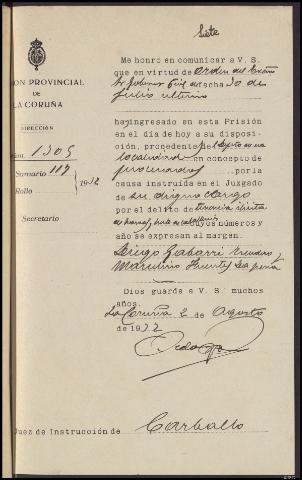 Siete
ON PROVINCIAL
DE
LA CORUÑA
DIRECCION
Núm. 1305
Sumario 117
Rollo 1932
Secretario
Me honro en comunicar a V. S.
que en virtud de orden del Excmo
Sr Gobernor Civil de fecha 30 de
julio ultimo
ha ingresado en esta Prisión
en el dia de hoy a su disposi-
ción, procedente del
en concepto de
procesados por la
causa instruida en el Juzgado
de su digno cargo
por el delito de tenencia ilicita
de armas, cuyos números y
año se expresan al margen.
Diego Gabarri
Marcelino Fuentes Lapeña
Dios guarde a V. S. muchos
años.
La Coruña 2 de Agosto
de 1932
Juez de Instrucción de Carballo